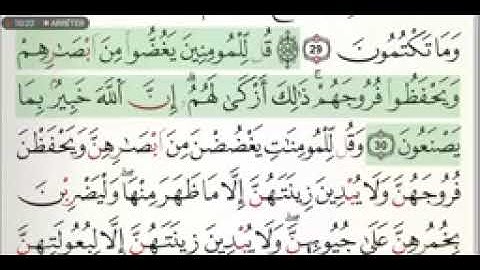 10:22 ARRÊTER
وَمَا تَكْتُمُونَ ٢٩ قُل لِّلْمُؤْمِنِينَ يَغُضُّوا۟ مِنْ أَبْصَـٰرِهِمْ
وَيَحْفَظُوا۟ فُرُوجَهُمْ ۚ ذَٰلِكَ أَزْكَىٰ لَهُمْ ۗ إِنَّ ٱللَّهَ خَبِيرٌۢ بِمَا
يَصْنَعُونَ ٣٠ وَقُل لِّلْمُؤْمِنَـٰتِ يَغْضُضْنَ مِنْ أَبْصَـٰرِهِنَّ وَيَحْفَظْنَ
فُرُوجَهُنَّ وَلَا يُبْدِينَ زِينَتَهُنَّ إِلَّا مَا ظَهَرَ مِنْهَا ۖ وَلْيَضْرِبْنَ
بِخُمُرِهِنَّ عَلَىٰ جُيُوبِهِنَّ ۖ وَلَا يُبْدِينَ زِينَتَهُنَّ إِلَّا لِبُعُولَتِهِنَّ